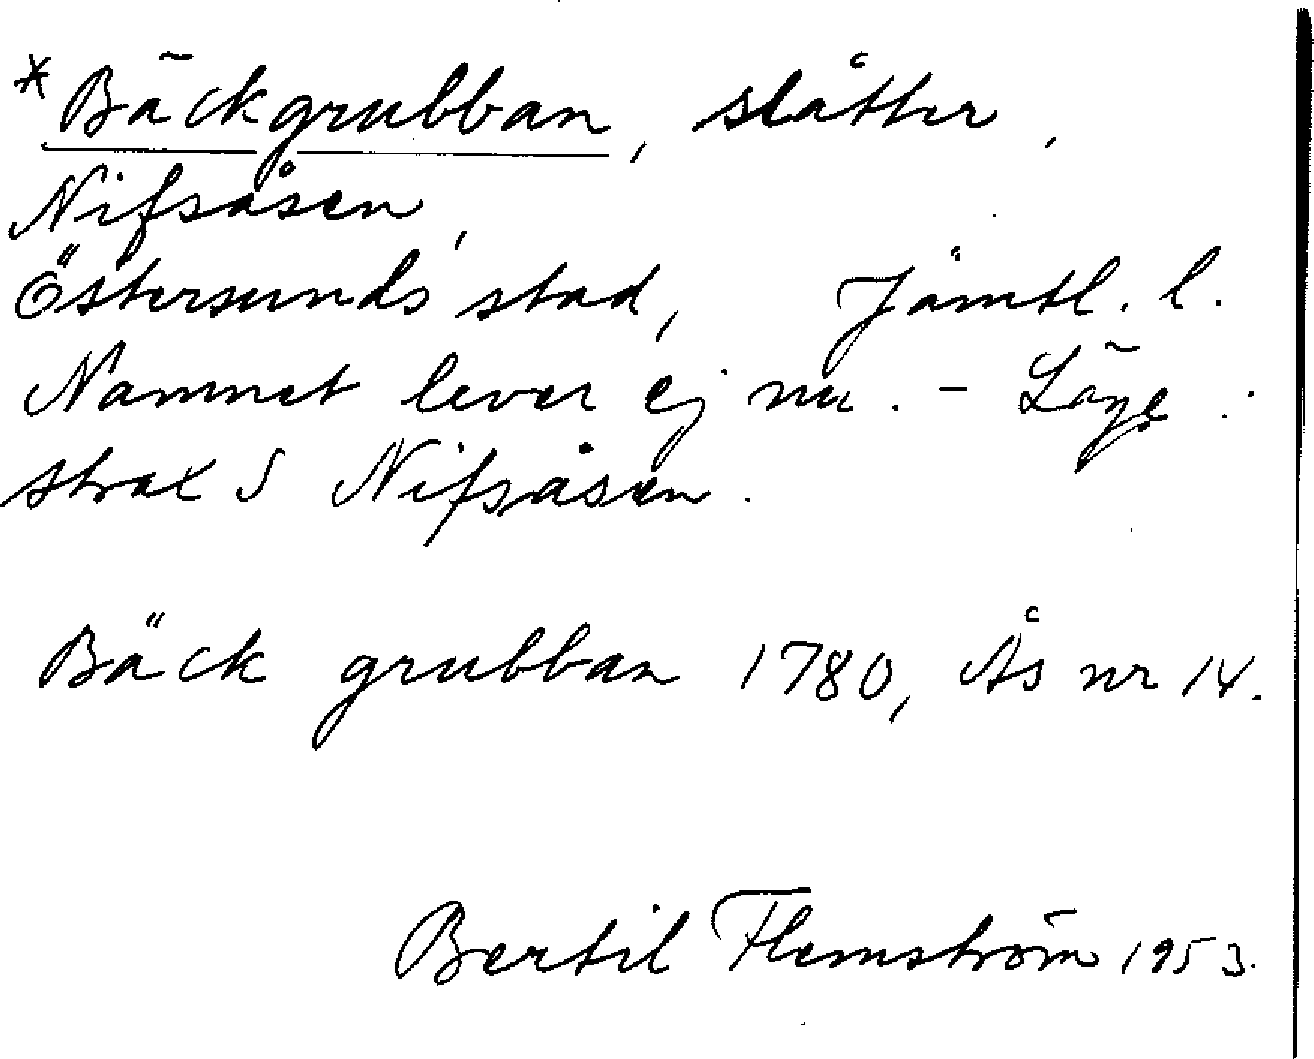 *Bäckgrubban, slåtter,
Nifsåsen,
Östersunds stad, Jämtl. l.
Namnet lever ej nu. - Läge:
strax S Nifsåsen.
Bäck grubban 1780, Ås nr 14.
Bertil Flemström 1953.